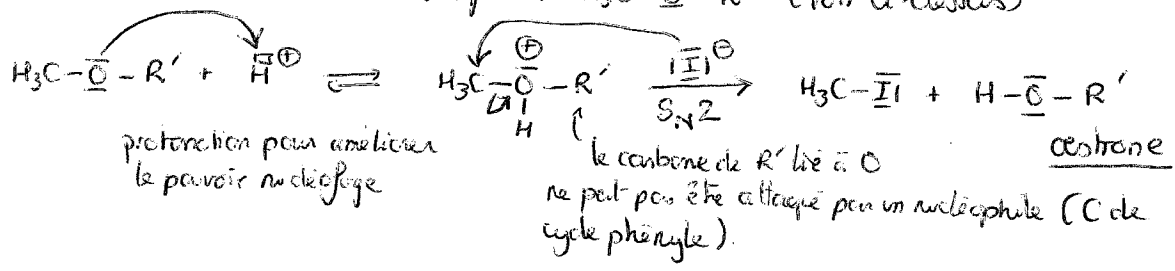 (voir ci-dessus)
H₃C-O̅-R' + H⊕ ⇌ H₃C-O⊕-R' |I̅|⊖ → H₃C-I̅| + H-O̅-R'
H SN2
protonation pour améliorer
le pouvoir nucléofuge
le carbone de R' lié à O œstrone
ne peut pas être attaqué par un nucléophile (C de
cycle phényle).